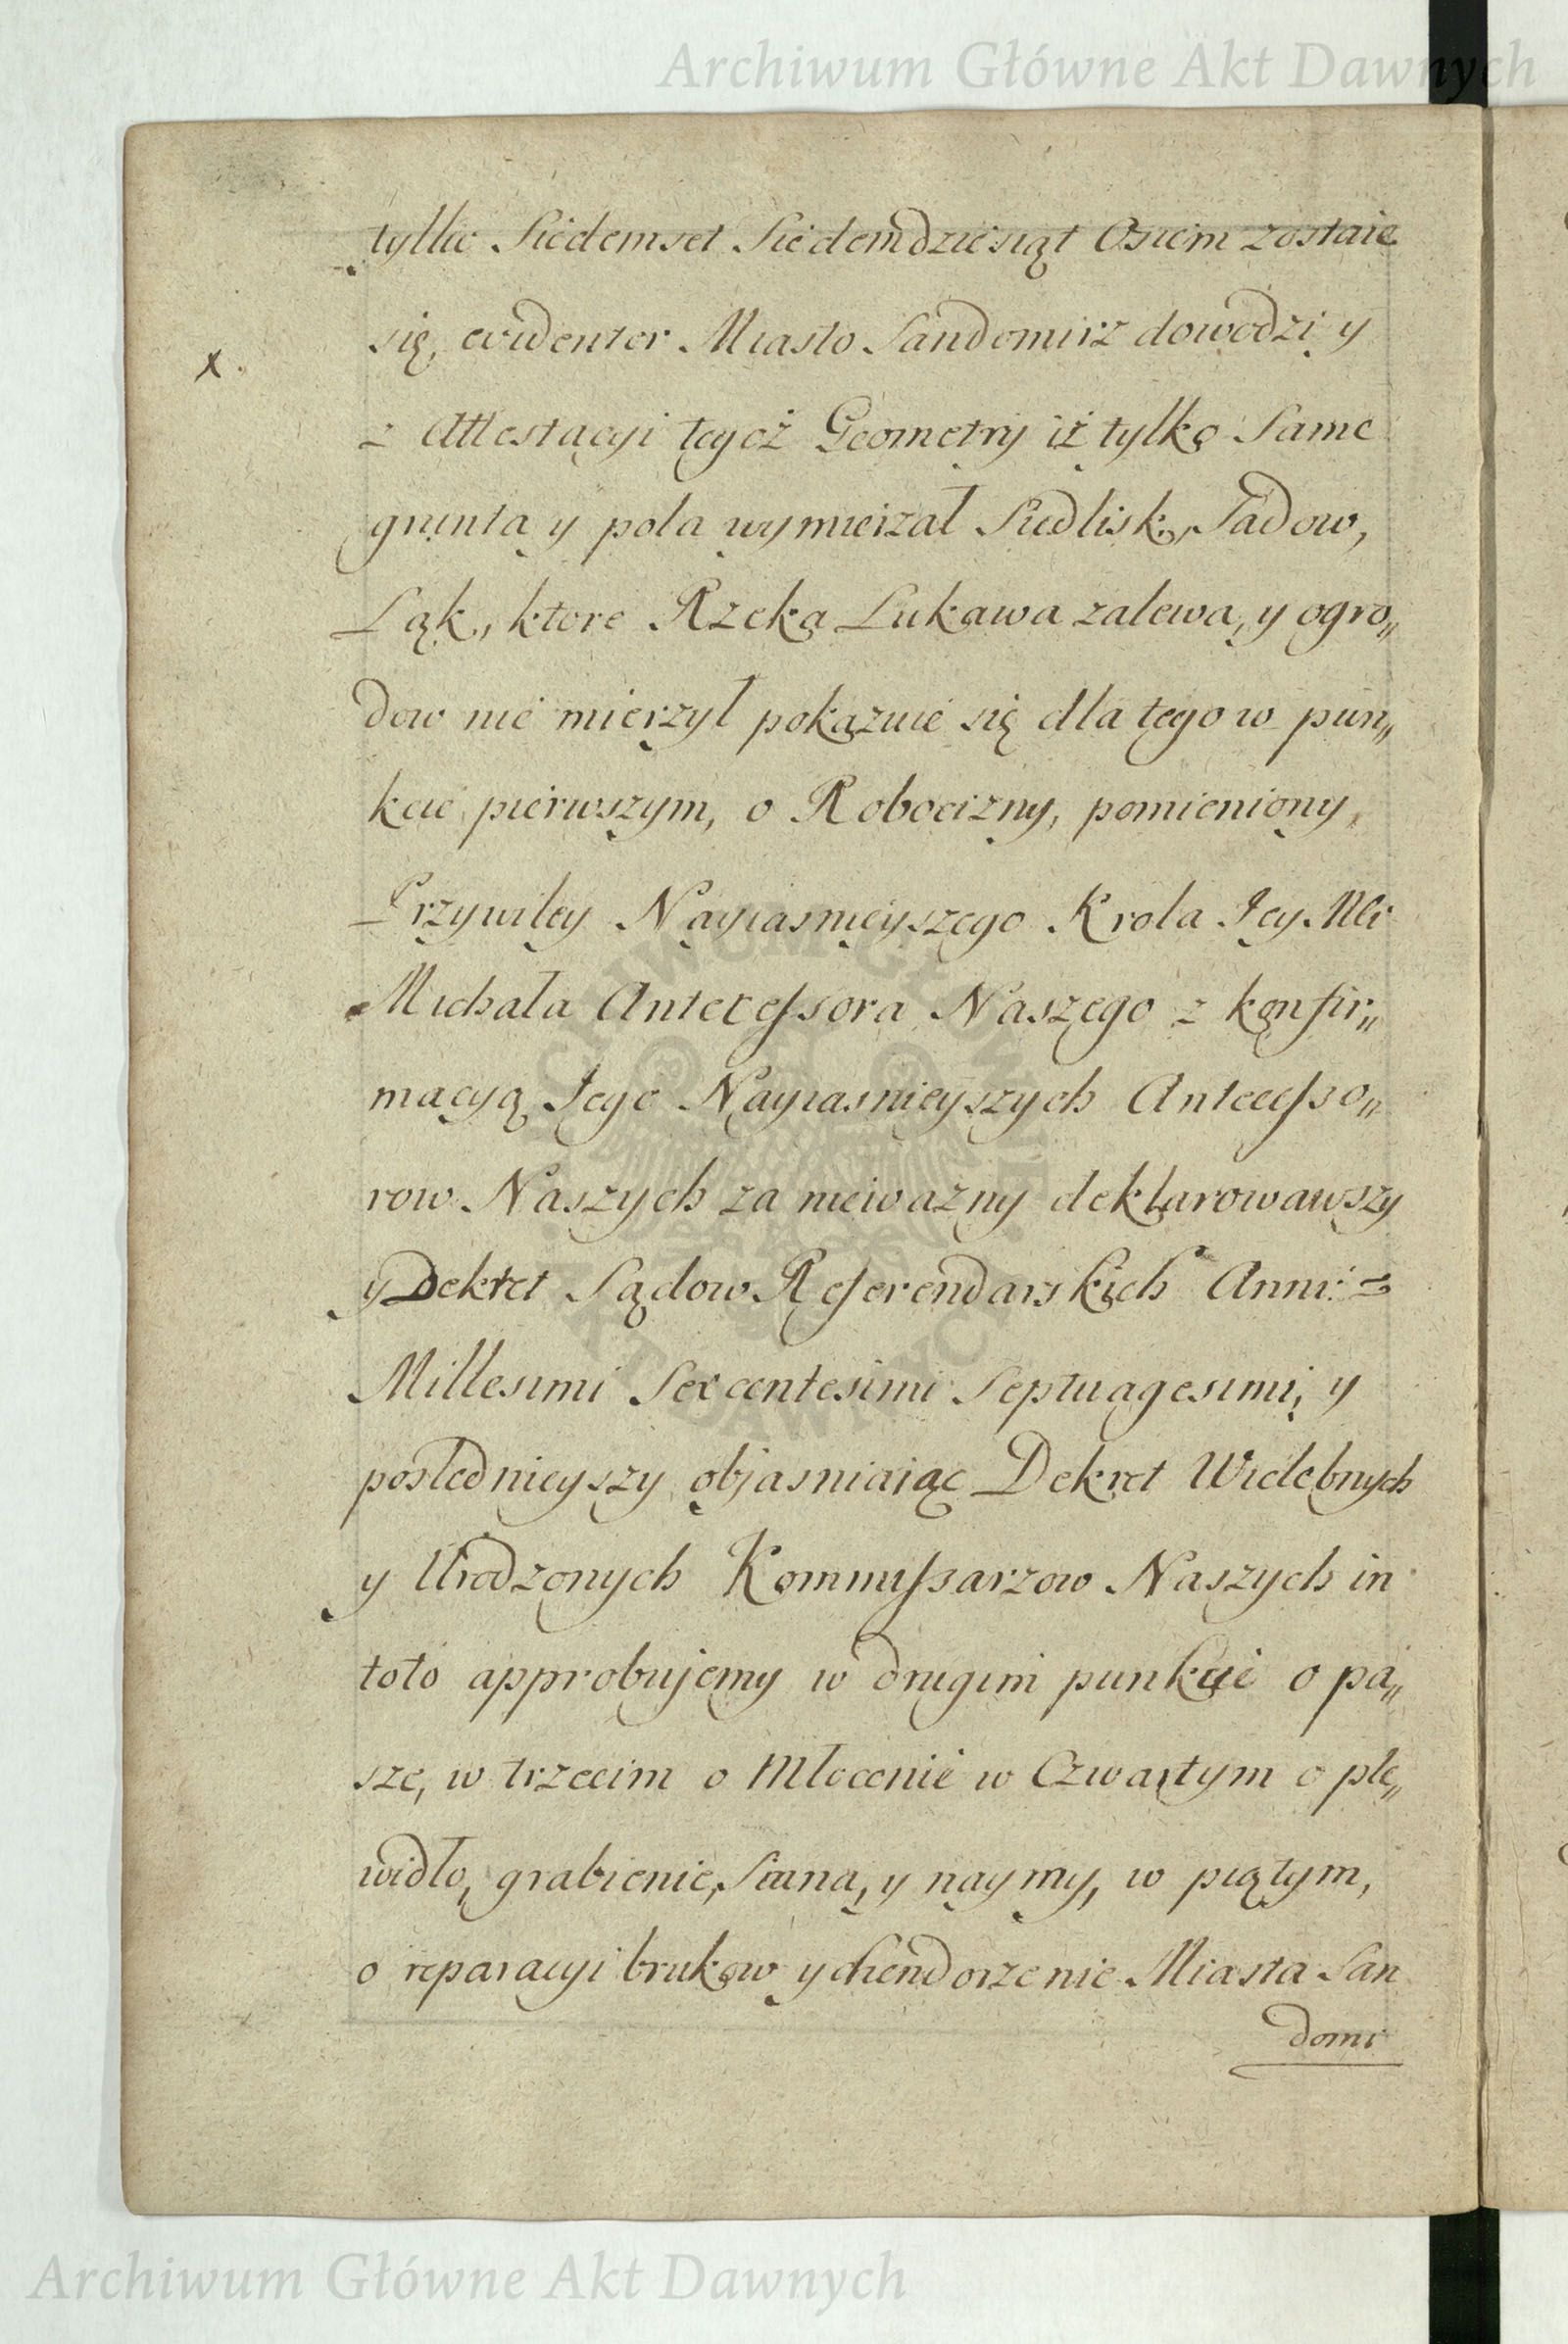 Archiwum Główne Akt Dawnych
tylko Siedemset Siedemdziesiąt Osiem zostaie
się, evidenter Miasto Sandomirz dowodzi y
x.
z Attestacyi tegoż Geometry iż tylko Same
grunta y pola wymierzał Siedlisk, Sadow,
Łąk, ktore Rzeka Łukawa zalewa, y ogro„
dow nie mierzył pokazuie się dla tego w pun„
kcie pierwszym, o Robocizny, pomieniony,
Przywiley Nayiasnieyszego Krola Jey Mci
Michała Antecessora Naszego z konfir„
macyą Jego Nayiasnieyszych Antecesso„
row Naszych za nieważny deklarowawszy
y Dekret Sądow Referendarskich Anni =
Millesimi Sexcentesimi Septuagesimi, y
poslednieyszy objasniaiąc Dekret Wielebnych
y Urodzonych Kommissarzow Naszych in
toto approbujemy w drugim punkcie o pa„
sze, w trzecim o Młocenie w Czwartym o ple„
widło, grabienie, Siana, y naymy, w piątym,
o reparacyi brukow y chendorzenie Miasta San
domi
ARCHIWUM GŁÓWNE AKT DAWNYCH
Archiwum Główne Akt Dawnych